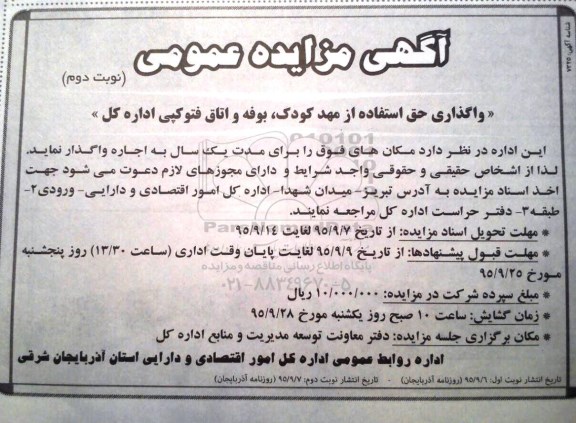 شناسه آگهی: ۷۲۲۵
آگهی مزایده عمومی
(نوبت دوم)
« واگذاری حق استفاده از مهد کودک، بوفه و اتاق فتوکپی اداره کل »
این اداره در نظر دارد مکان های فوق را برای مدت یک سال به اجاره واگذار نماید.
لذا از اشخاص حقیقی و حقوقی واجد شرایط و دارای مجوزهای لازم دعوت می شود جهت
اخذ اسناد مزایده به آدرس تبریز- میدان شهدا- اداره کل امور اقتصادی و دارایی- ورودی۲-
طبقه۳- دفتر حراست اداره کل مراجعه نمایند.
* مهلت تحویل اسناد مزایده: از تاریخ ۹۵/۹/۷ لغایت ۹۵/۹/۱۴
* مهلت قبول پیشنهادها: از تاریخ ۹۵/۹/۹ لغایت پایان وقت اداری (ساعت ۱۳/۳۰) روز پنجشنبه
مورخ ۹۵/۹/۲۵
پایگاه اطلاع رسانی مناقصه و مزایده
۰۲۱-۸۸۳۴۹۶۷۰-۵
* مبلغ سپرده شرکت در مزایده: ۱۰/۰۰۰/۰۰۰ ریال
* زمان گشایش: ساعت ۱۰ صبح روز یکشنبه مورخ ۹۵/۹/۲۸
* مکان برگزاری جلسه مزایده: دفتر معاونت توسعه مدیریت و منابع اداره کل
اداره روابط عمومی اداره کل امور اقتصادی و دارایی استان آذربایجان شرقی
تاریخ انتشار نوبت اول: ۹۵/۹/۶ (روزنامه آذربایجان) - تاریخ انتشار نوبت دوم: ۹۵/۹/۷ (روزنامه آذربایجان)